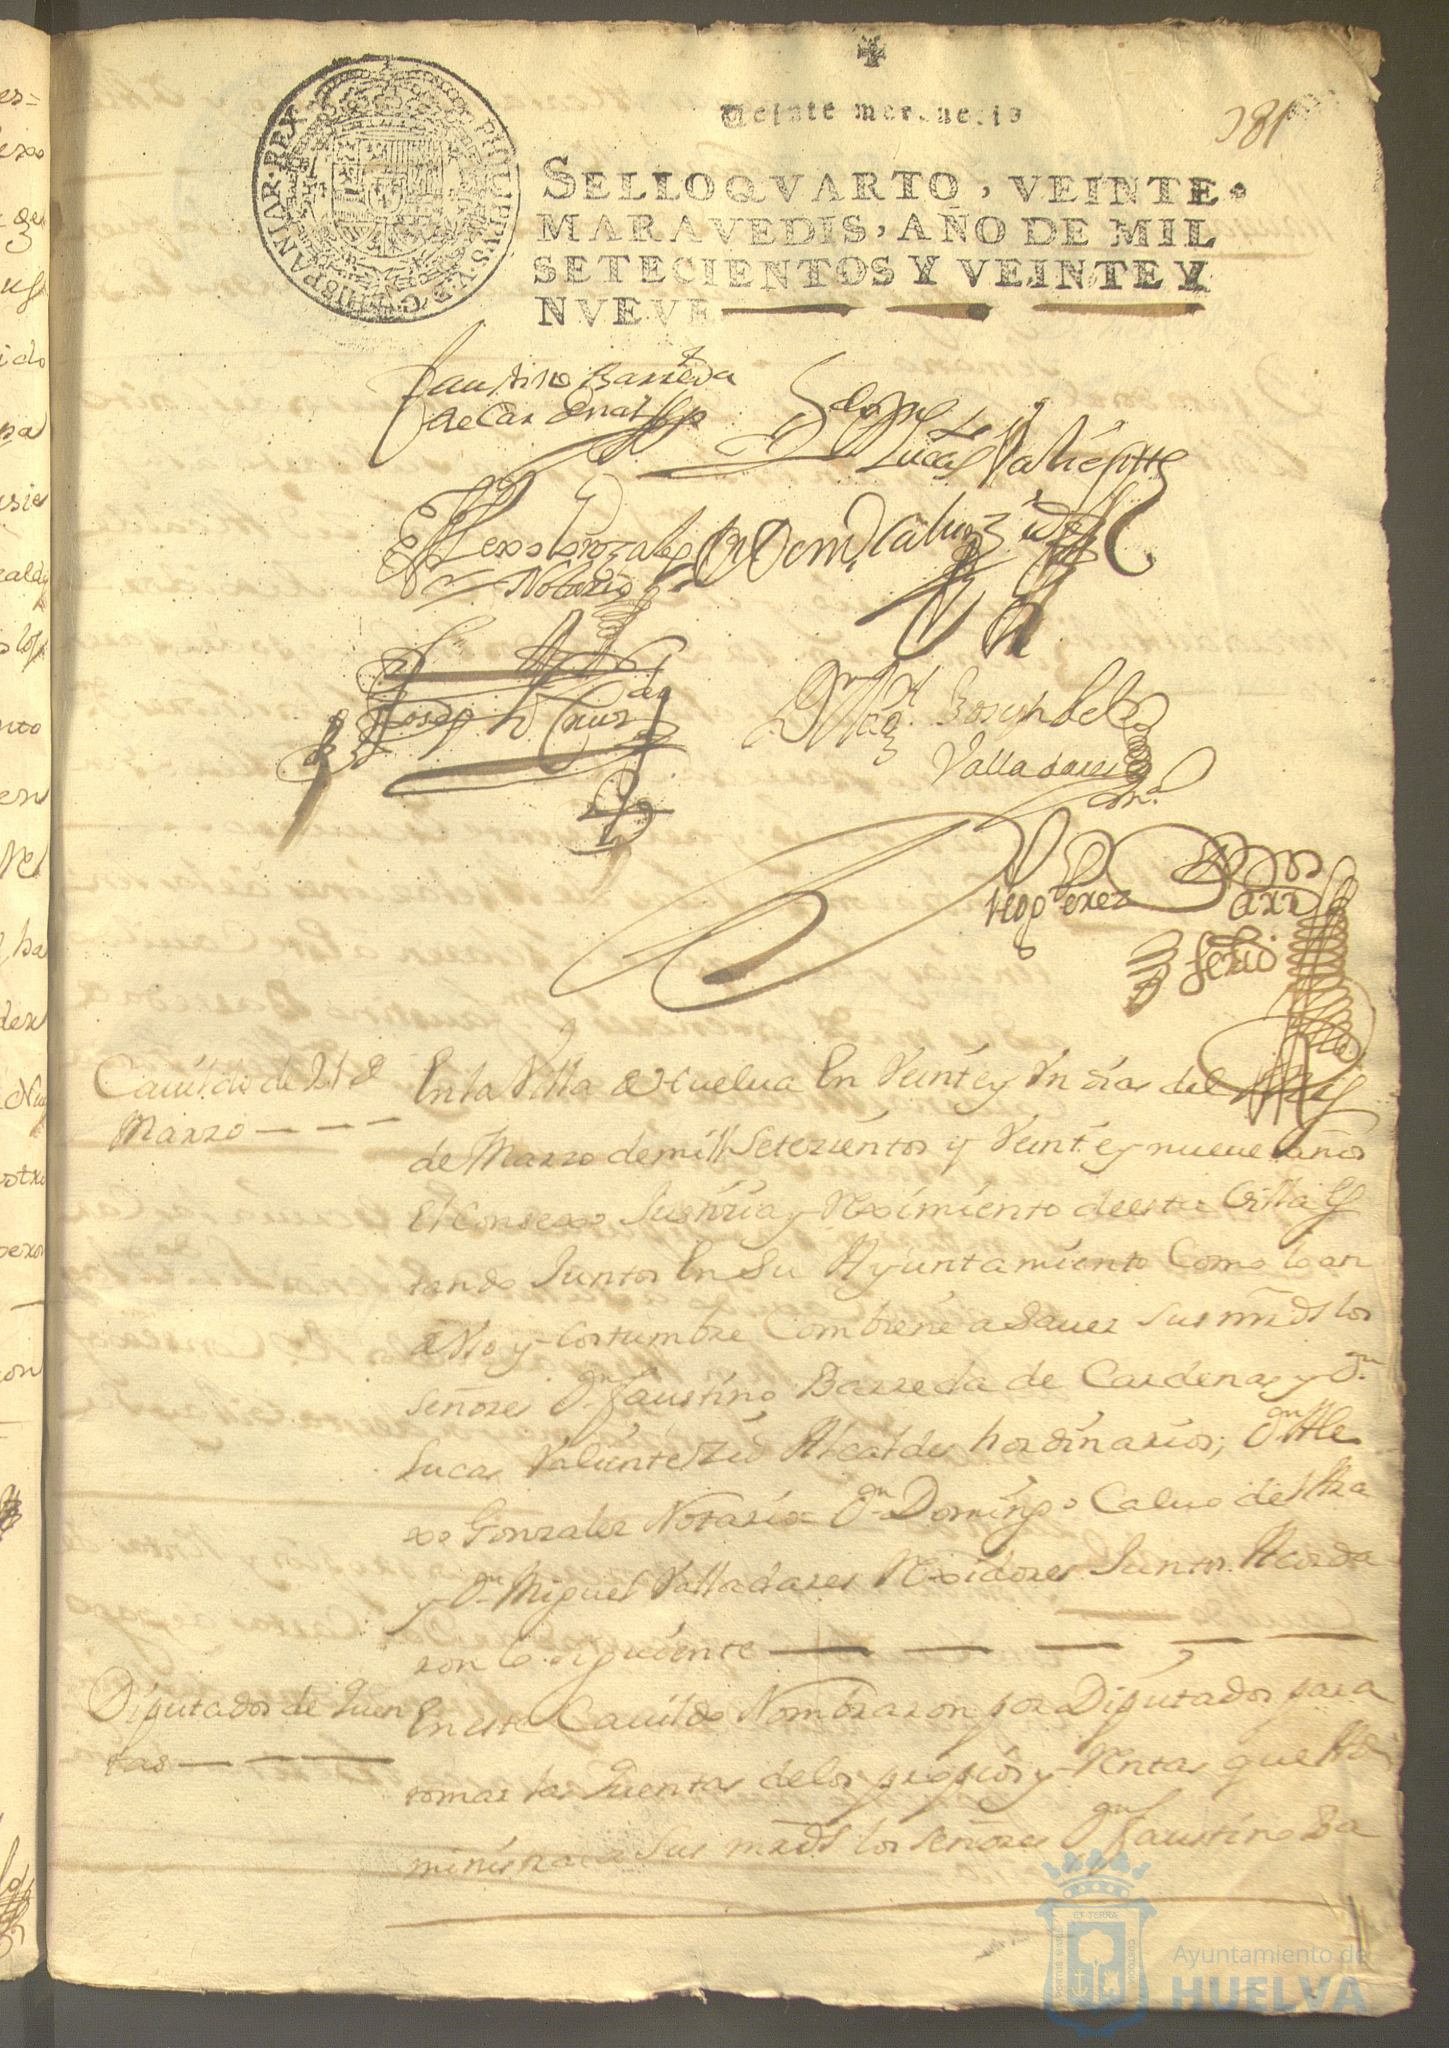 Veinte maravedis
381
PHILIPPUS·V·D·G·HISPANIAR·REX
SELLO QVARTO, VEINTE
MARAVEDIS, AÑO DE MIL
SETECIENTOS Y VEINTE Y
NVEVE
Faustino Barreda
de Cardenas
Lucas Valiente
Alexo Gonzalez
Notario
Domo Calvo
Joseph de la Cruz
Dn Migl Joseph de
Valladares
Diego Perez
En la Villa de Huelua En Veinte y Vn dias del Mes
Cauildo de 21 de
Marzo
de Marzo de mill Setezientos y Veinte y nueue años
El Consexo Justizia y Reximiento de esta Villa es
tando Juntos En Su Ayuntamiento Como lo an
de Vso y Costumbre Combiene a Sauer Sus mrds los
Señores Dn Faustino Barreda de Cardenas y Dn
Lucas Valiente Alcaldes hordinarios; Dn Ale
xo Gonzalez Notario Dn Domingo Caluo
y Dn Miguel Valladares Rexidores Juntos Acorda
ron lo Siguiente
Diputados de Quen
tas
En este Cauildo Nombraron por Diputados para
tomar las Quentas de los propios y Rentas que Ad
ministra a Sus mrds los Señores Dn Faustino Ba
PORTUS MARIS ET TERRAE CUSTODIA
Ayuntamiento de
HUELVA